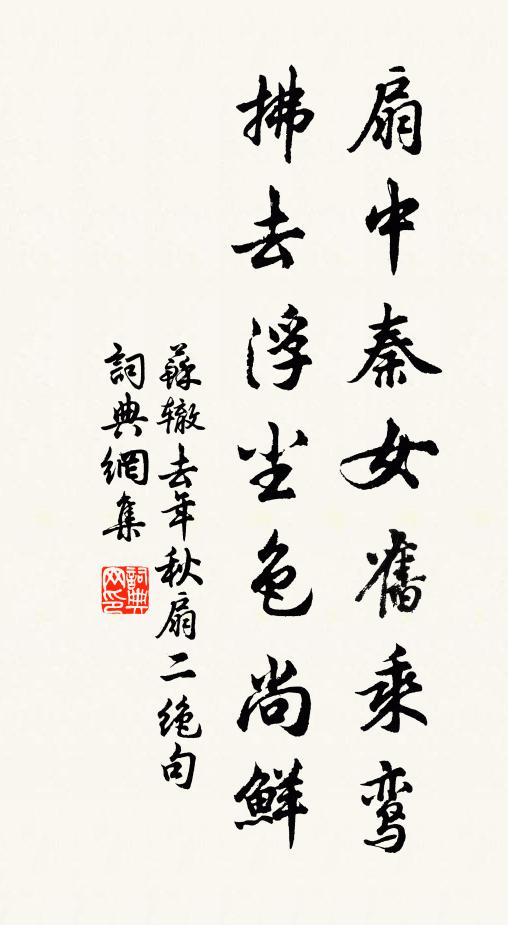 扇中秦女舊乘鸾
拂去浮尘色尚鮮
蘇辙去年秋扇二绝句
詞典網集
詞典网印